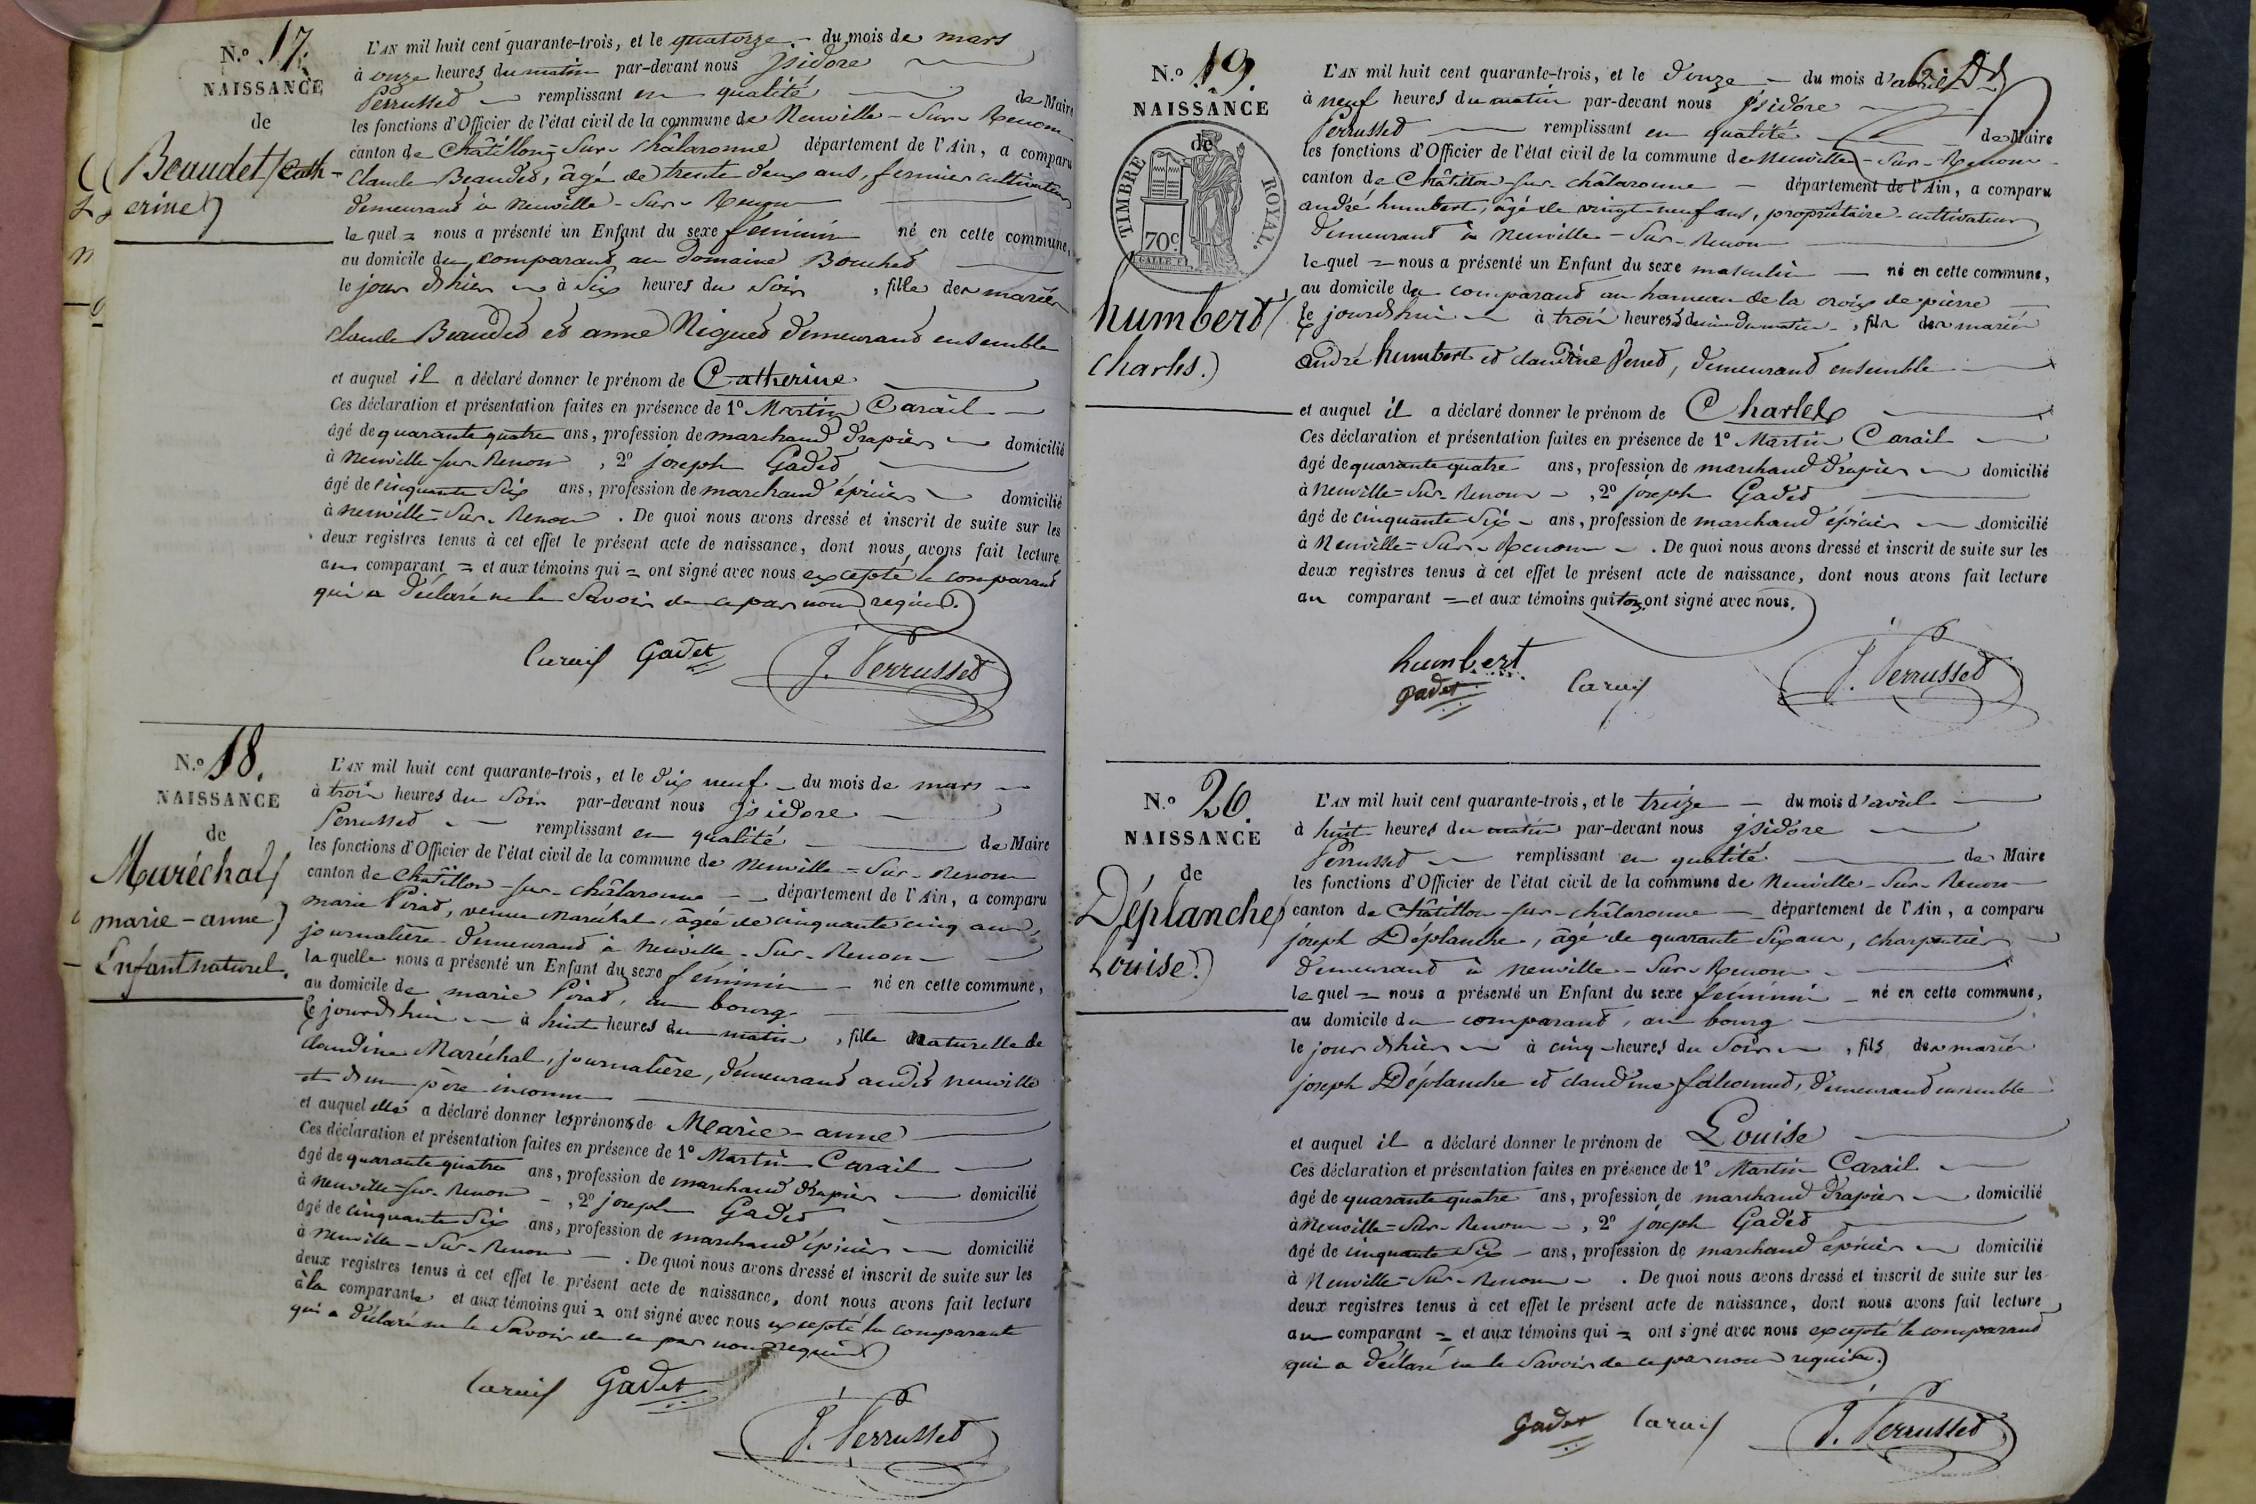 N.o 17.
NAISSANCE
de
Beaudet Cath-
erine
L'AN mil huit cent quarante-trois, et le quatorze du mois de mars
à onze heures du matin par-devant nous Isidore
Perrusset remplissant en qualité de Maire
les fonctions d'Officier de l'état civil de la commune de Neuville-Sur-Renom
canton de Châtillon-Sur-Châlaronne département de l'Ain, a comparu
Claude Beaudet, âgé de trente deux ans, fermier cultivateur
demeurant à Neuville-Sur-Renom
lequel = nous a présenté un Enfant du sexe féminin né en cette commune,
au domicile du comparant au Domaine Bouchet
le jour d'hier à Six heures du Soir, fille des mariés
claude Beaudet et anne Nigued demeurant ensemble
et auquel il a déclaré donner le prénom de Catherine
Ces déclaration et présentation faites en présence de 1o Martin Carail
âgé de quarante quatre ans, profession de marchand drapier domicilié
à Neuville-sur-Renom, 2o joseph Gadet
âgé de cinquante Six ans, profession de marchand épicier domicilié
à neuville-Sur-Renom. De quoi nous avons dressé et inscrit de suite sur les
deux registres tenus à cet effet le présent acte de naissance, dont nous avons fait lecture
au comparant = et aux témoins qui = ont signé avec nous excepté le comparant
qui a déclaré ne le Savoir de ce par nous requis.
Carail Gadet J. Perrusset
N.o 18.
NAISSANCE
de
Maréchal
marie-anne
Enfant naturel.
L'AN mil huit cent quarante-trois, et le dix neuf du mois de mars
à trois heures du Soir par-devant nous Isidore
Perrusset remplissant en qualité de Maire
les fonctions d'Officier de l'état civil de la commune de Neuville-Sur-Renom
canton de Châtillon-sur-châlaronne département de l'Ain, a comparu
marie Pirat, veuve Maréchal, âgée de cinquante cinq ans,
journalière demeurant à Neuville-Sur-Renom
laquelle nous a présenté un Enfant du sexe féminin né en cette commune,
au domicile de marie Pirat, au bourg
le jourd'hui à huit heures du matin, fille naturelle de
claudine Maréchal, journalière, demeurant audit neuville
et d'un père inconnu
et auquel elle a déclaré donner les prénoms de Marie-anne
Ces déclaration et présentation faites en présence de 1o Martin Carail
âgé de quarante quatre ans, profession de marchand drapier domicilié
à neuville-sur-Renom, 2o joseph Gadet
âgé de cinquante Six ans, profession de marchand épicier domicilié
à Neuville-Sur-Renom. De quoi nous avons dressé et inscrit de suite sur les
deux registres tenus à cet effet le présent acte de naissance, dont nous avons fait lecture
à la comparante et aux témoins qui = ont signé avec nous excepté la comparante
qui a déclaré ne le Savoir de ce par nous requis
Carail Gadet
J. Perrusset
N.o 19.
NAISSANCE
de
TIMBRE ROYAL
70c
humbert
charles.
L'AN mil huit cent quarante-trois, et le douze du mois d'avril
à neuf heures du matin par-devant nous Isidore
Perrusset remplissant en qualité de Maire
les fonctions d'Officier de l'état civil de la commune de Neuville-Sur-Renom
canton de Châtillon-sur-châlaronne département de l'Ain, a comparu
andré humbert, âgé de vingt-neuf ans, propriétaire-cultivateur
demeurant à Neuville-Sur-Renom
lequel = nous a présenté un Enfant du sexe masculin né en cette commune,
au domicile du comparant au hameau de la croix de pierre
le jourd'hui à trois heures & demie du matin, fils des mariés
andré humbert et claudine, demeurant ensemble
et auquel il a déclaré donner le prénom de Charles
Ces déclaration et présentation faites en présence de 1o Martin Carail
âgé de quarante quatre ans, profession de marchand drapier domicilié
à Neuville-Sur-Renom, 2o joseph Gadet
âgé de cinquante Six ans, profession de marchand épicier domicilié
à Neuville-Sur-Renom. De quoi nous avons dressé et inscrit de suite sur les
deux registres tenus à cet effet le présent acte de naissance, dont nous avons fait lecture
au comparant = et aux témoins qui tous ont signé avec nous.
humbert
Gadet Carail J. Perrusset
N.o 20.
NAISSANCE
de
Déplanche
Louise.
L'AN mil huit cent quarante-trois, et le treize du mois d'avril
à huit heures du matin par-devant nous Isidore
Perrusset remplissant en qualité de Maire
les fonctions d'Officier de l'état civil de la commune de Neuville-Sur-Renom
canton de Châtillon-sur-châlaronne département de l'Ain, a comparu
joseph Déplanche, âgé de quarante Six ans, charpentier
demeurant à Neuville-Sur-Renom
lequel = nous a présenté un Enfant du sexe féminin né en cette commune,
au domicile du comparant, au bourg
le jour d'hier à cinq heures du Soir, fils des mariés
joseph Déplanche et claudine, demeurant ensemble
et auquel il a déclaré donner le prénom de Louise
Ces déclaration et présentation faites en présence de 1o Martin Carail
âgé de quarante quatre ans, profession de marchand drapier domicilié
à Neuville-Sur-Renom, 2o joseph Gadet
âgé de cinquante Six ans, profession de marchand épicier domicilié
à Neuville-Sur-Renom. De quoi nous avons dressé et inscrit de suite sur les
deux registres tenus à cet effet le présent acte de naissance, dont nous avons fait lecture
au comparant = et aux témoins qui = ont signé avec nous excepté le comparant
qui a déclaré ne le Savoir de ce par nous requis.
Gadet Carail J. Perrusset